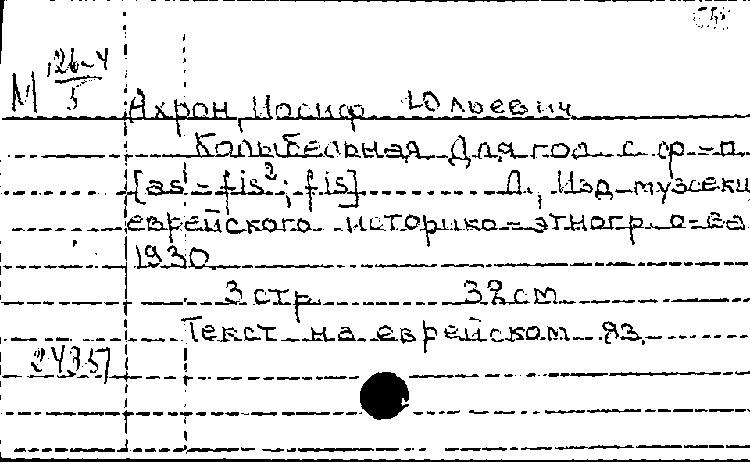 М 26-4
5
Ахрон, Иосиф Юльевич
Колыбельная для гол. с ф-п.
[as¹ - fis²; fis] Л., Изд. музсекц
еврейского историко-этногр. о-ва
1930
3 стр. 32 см
Текст на еврейском яз.
24357